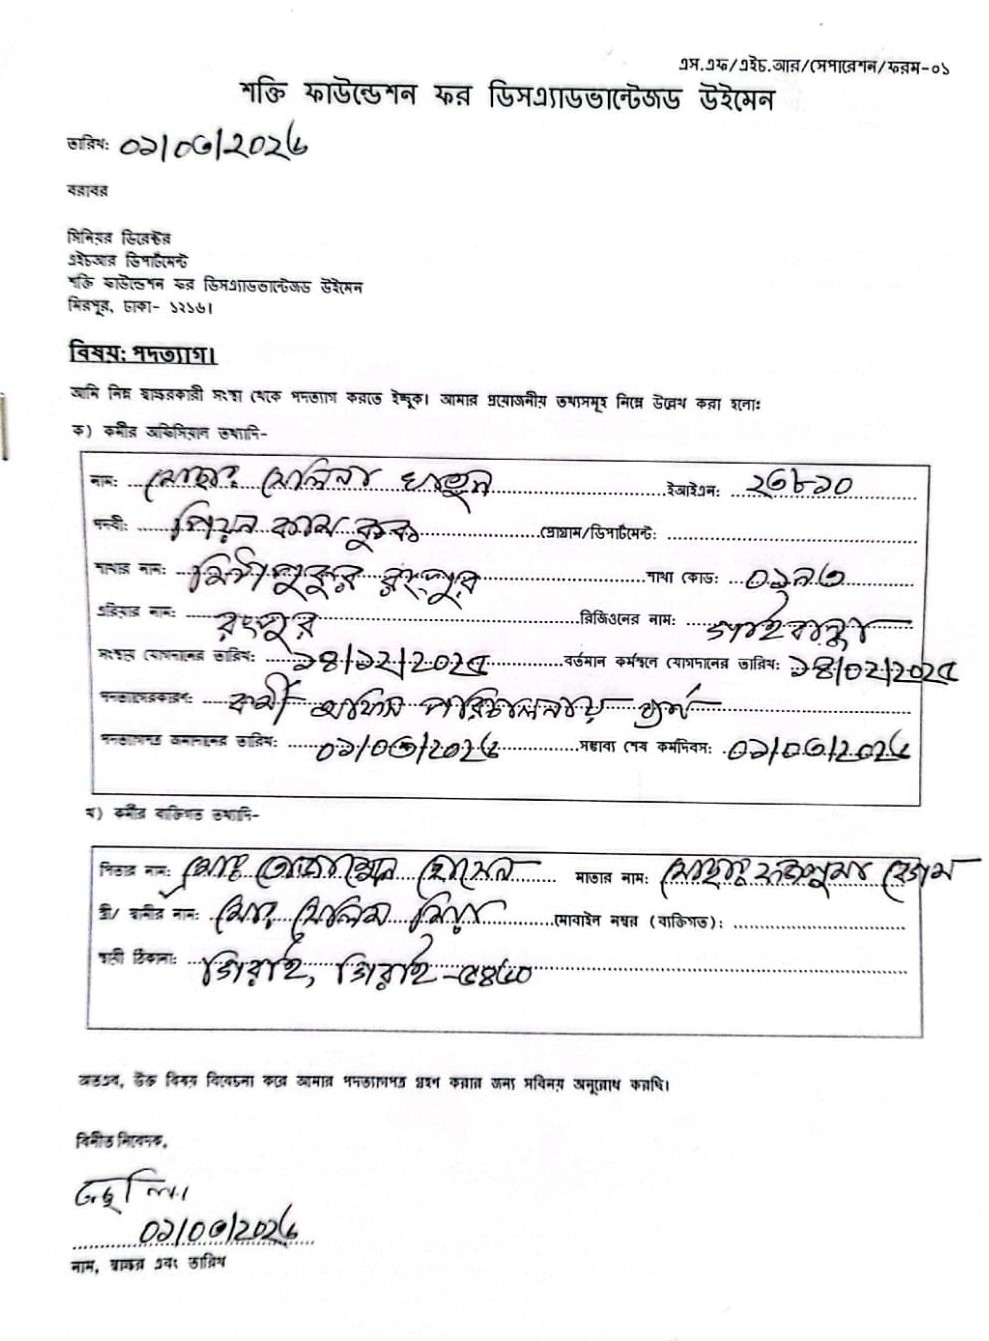 এস.এফ/এইচ.আর/সেপারেশন/ফরম-০১
শক্তি ফাউন্ডেশন ফর ডিসএ্যাডভান্টেজড উইমেন
তারিখ: ০১/০৩/২০২৬
বরাবর
সিনিয়র ডিরেক্টর
এইচআর ডিপার্টমেন্ট
শক্তি ফাউন্ডেশন ফর ডিসএ্যাডভান্টেজড উইমেন
মিরপুর, ঢাকা- ১২১৬।
বিষয়: পদত্যাগ।
আমি নিম্ন স্বাক্ষরকারী সংস্থা থেকে পদত্যাগ করতে ইচ্ছুক। আমার প্রয়োজনীয় তথ্যসমূহ নিম্নে উল্লেখ করা হলোঃ
ক) কর্মীর অফিসিয়াল তথ্যাদি-
নাম: মোছাঃ সেলিনা খাতুন ইআইএন: ২৩৮১০
পদবী: পিয়ন কাম কুক প্রোগ্রাম/ডিপার্টমেন্ট:
শাখার নাম: মির্ঠাপুকুর রংপুর শাখা কোড: ০১৯৩
এরিয়ার নাম: রংপুর রিজিওনের নাম: গাইবান্ধা
সংস্থায় যোগদানের তারিখ: ১৪/১২/২০২৫ বর্তমান কর্মস্থলে যোগদানের তারিখ: ১৪/০২/২০২৫
পদত্যাগেরকারণ: কর্মী অফিস পরিচালনায় ব্যর্থ
পদত্যাগপত্র জমাদানের তারিখ: ০১/০৩/২০২৬ সম্ভাব্য শেষ কর্মদিবস: ০১/০৩/২০২৬
খ) কর্মীর ব্যক্তিগত তথ্যাদি-
পিতার নাম: মোঃ তোফাজ্জল হোসেন মাতার নাম: মোছাঃ বেগম
স্ত্রী/ স্বামীর নাম: মোঃ সেলিম মিয়া মোবাইল নম্বর (ব্যক্তিগত):
স্থায়ী ঠিকানা: গিরাই, গিরাই -৫৪৬০
অতএব, উক্ত বিষয় বিবেচনা করে আমার পদত্যাগপত্র গ্রহণ করার জন্য সবিনয় অনুরোধ করছি।
বিনীত নিবেদক,
০১/০৩/২০২৬
নাম, স্বাক্ষর এবং তারিখ